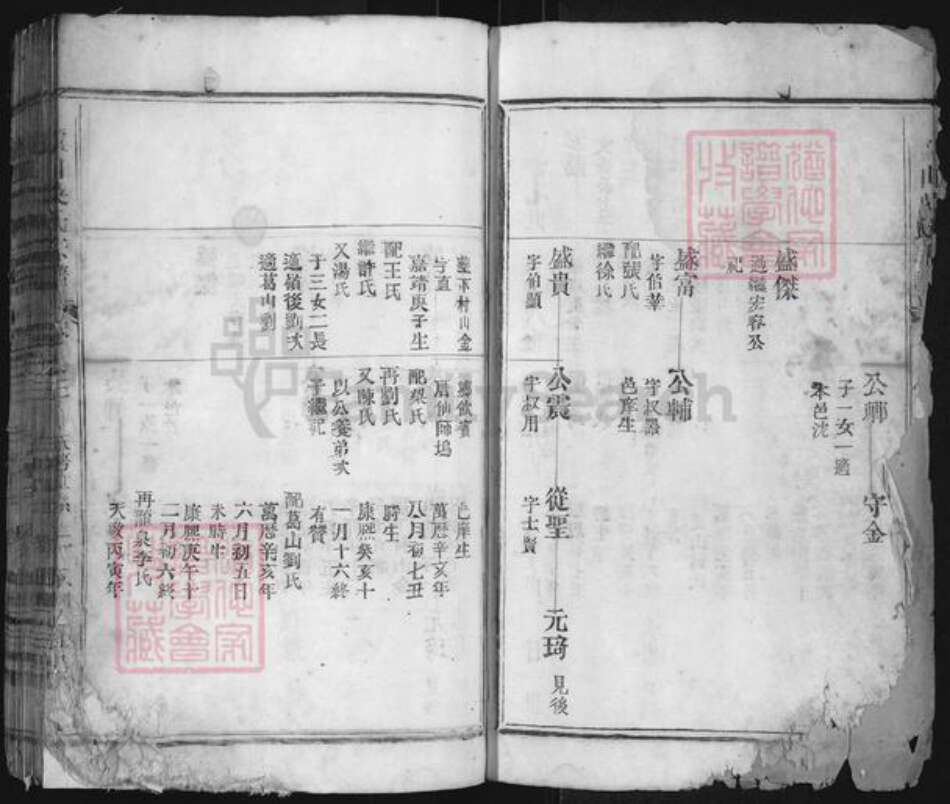 公卿
子一女一適
本邑沈
守金
盛傑
過繼宏容公
祀
盛富
字伯華
配張氏
繼徐氏
公輔
字叔器
邑庠生
盛貴
字伯顯
公震
字叔用
從聖
字士賢
元琦
見後
字直
嘉靖庚子生
配王氏
繼許氏
又湯氏
子三女二長
適嶺後劉次
適葛山劉
鄉飲賓
居仙師塢
再劉氏
又陳氏
以公養弟次
子繼祀
邑庠生
萬曆辛亥年
八月初七丑
時生
康熙癸亥十
一月十六終
有贊
配葛山劉氏
萬曆辛亥年
六月初五日
未時生
康熙庚午十
二月初六終
再醮泉李氏
天啟丙寅年